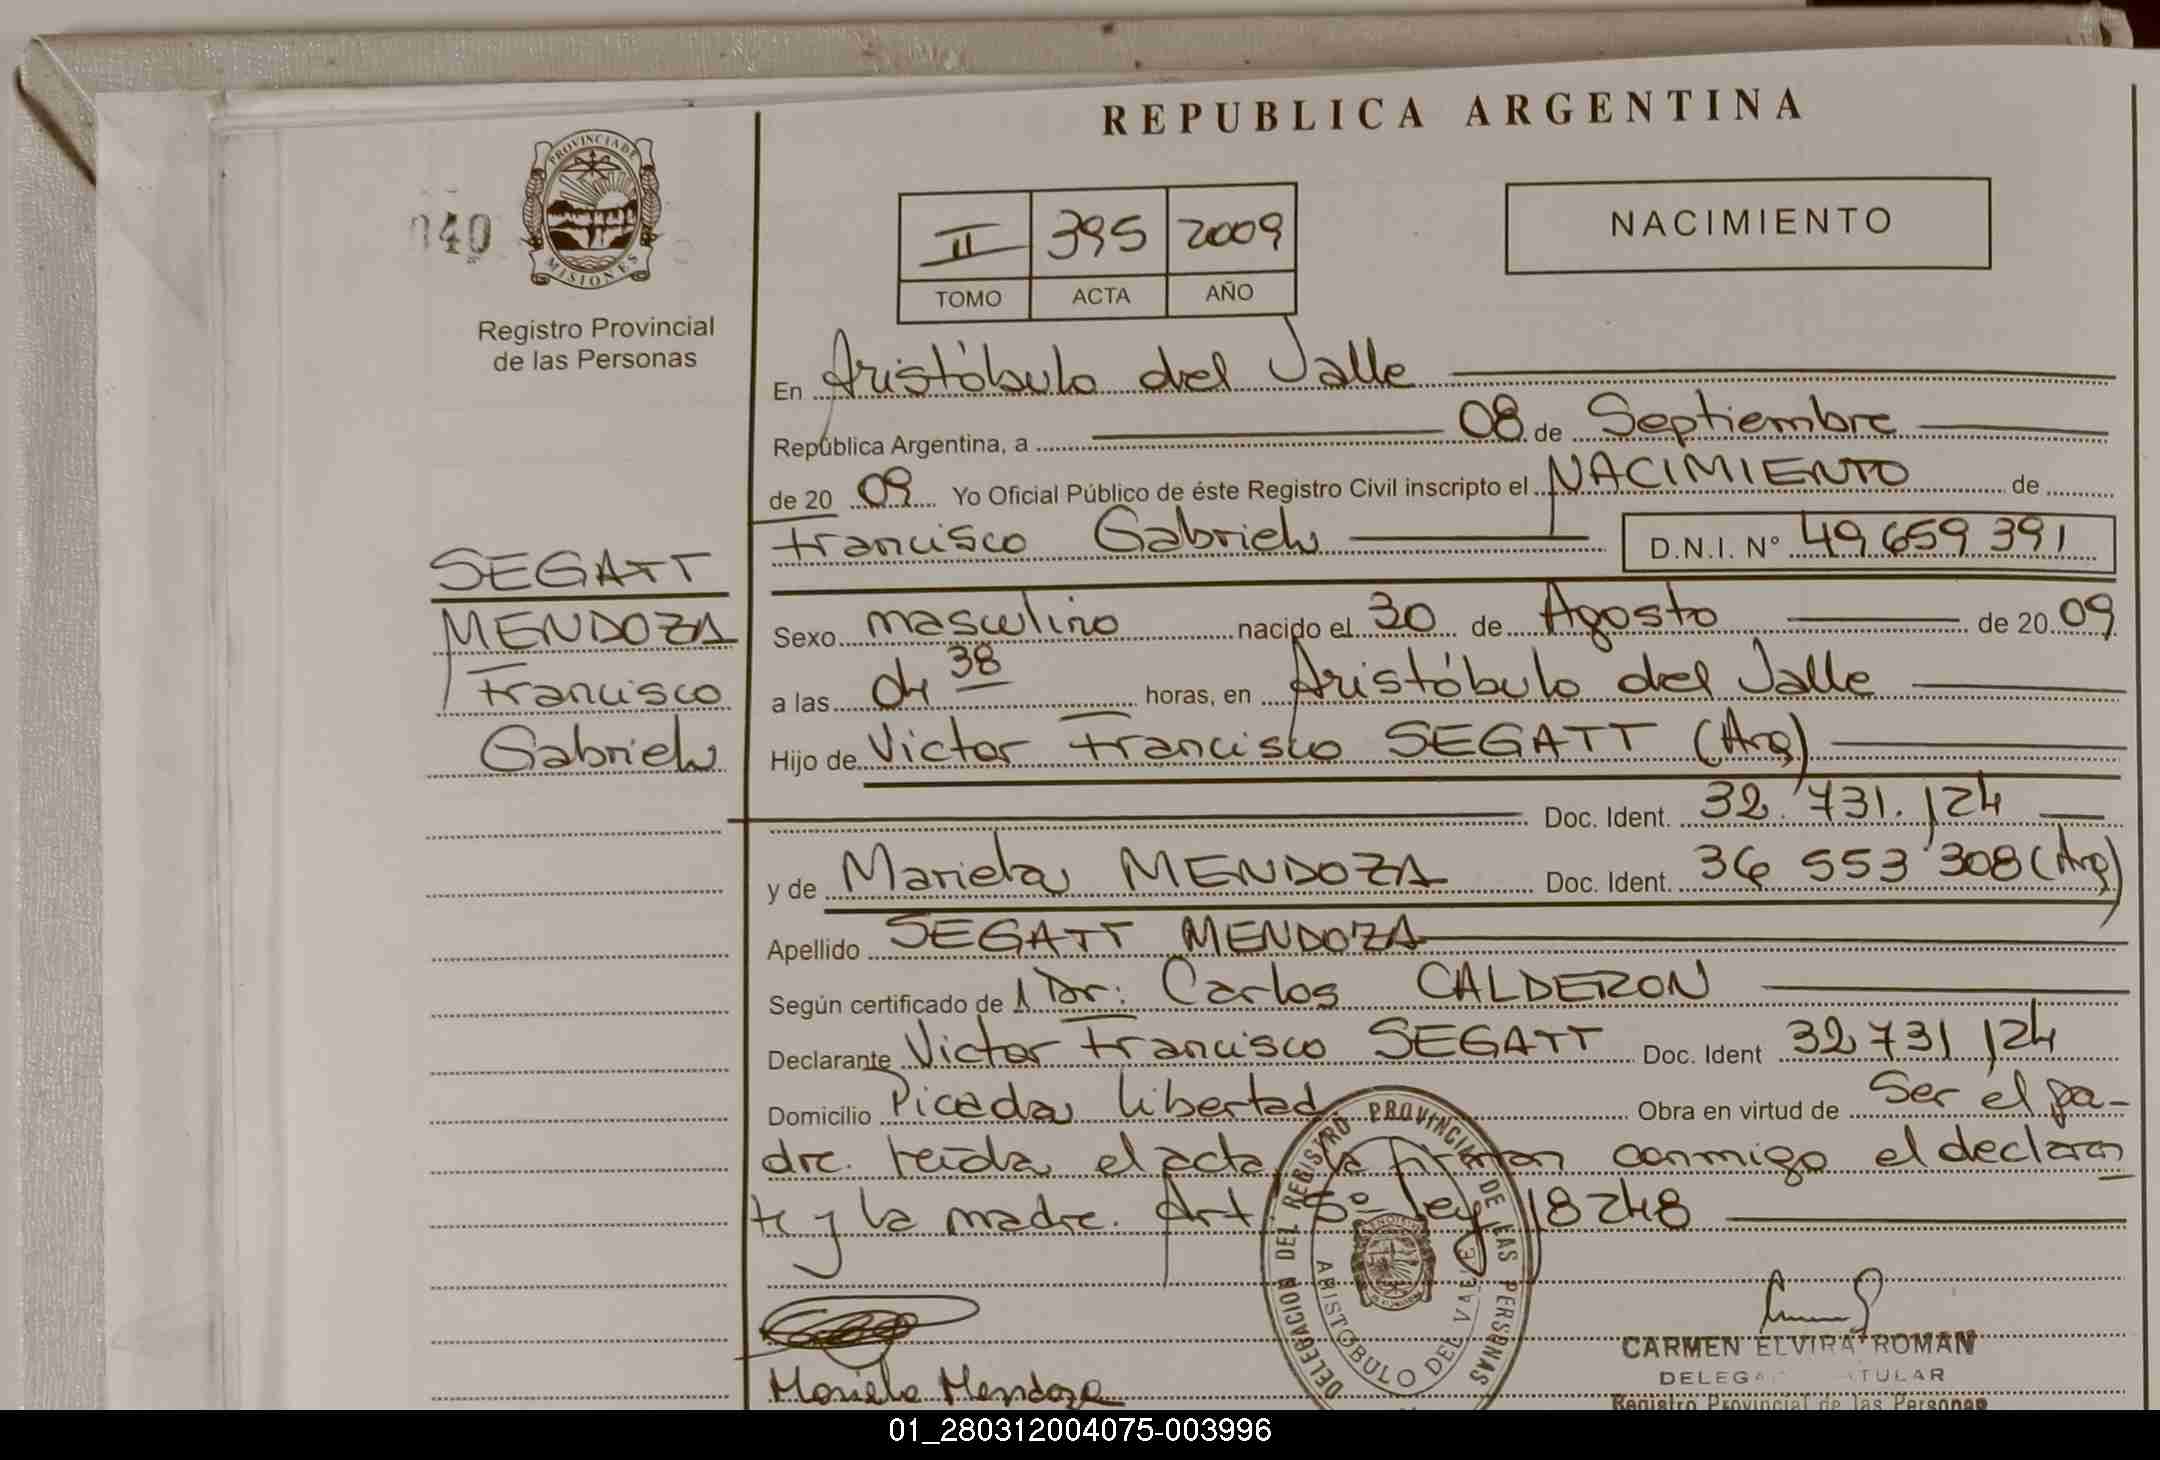 REPUBLICA ARGENTINA
040
PROVINCIA DE
MISIONES
Registro Provincial
de las Personas
II 395 2009
TOMO ACTA AÑO
NACIMIENTO
En Aristóbulo del Valle
República Argentina, a 08 de Septiembre
de 20 09 Yo Oficial Público de éste Registro Civil inscripto el NACIMIENTO de
Francisco Gabriel D.N.I. Nº 49 659 391
SEGATT
MENDOZA
Francisco
Gabriel
Sexo masculino nacido el 30 de Agosto de 20 09
a las 04 38 horas, en Aristóbulo del Valle
Hijo de Victor Francisco SEGATT (Arg)
Doc. Ident. 32.731.124
y de Mariela MENDOZA Doc. Ident. 36 553 308 (Arg)
Apellido SEGATT MENDOZA
Según certificado de 1 Dr: Carlos CALDERON
Declarante Victor Francisco SEGATT Doc. Ident 32 731 124
Domicilio Picada libertad Obra en virtud de Ser el pa-
dre. leída el acta, la firman conmigo el declaran
te y la madre. Art 5º ley 18248
DELEGACION DEL REGISTRO PROVINCIAL DE LAS PERSONAS
ARISTOBULO DEL VALLE
Mariela Mendoza
CARMEN ELVIRA ROMAN
TITULAR
Registro Provincial de las Personas
01_280312004075-003996